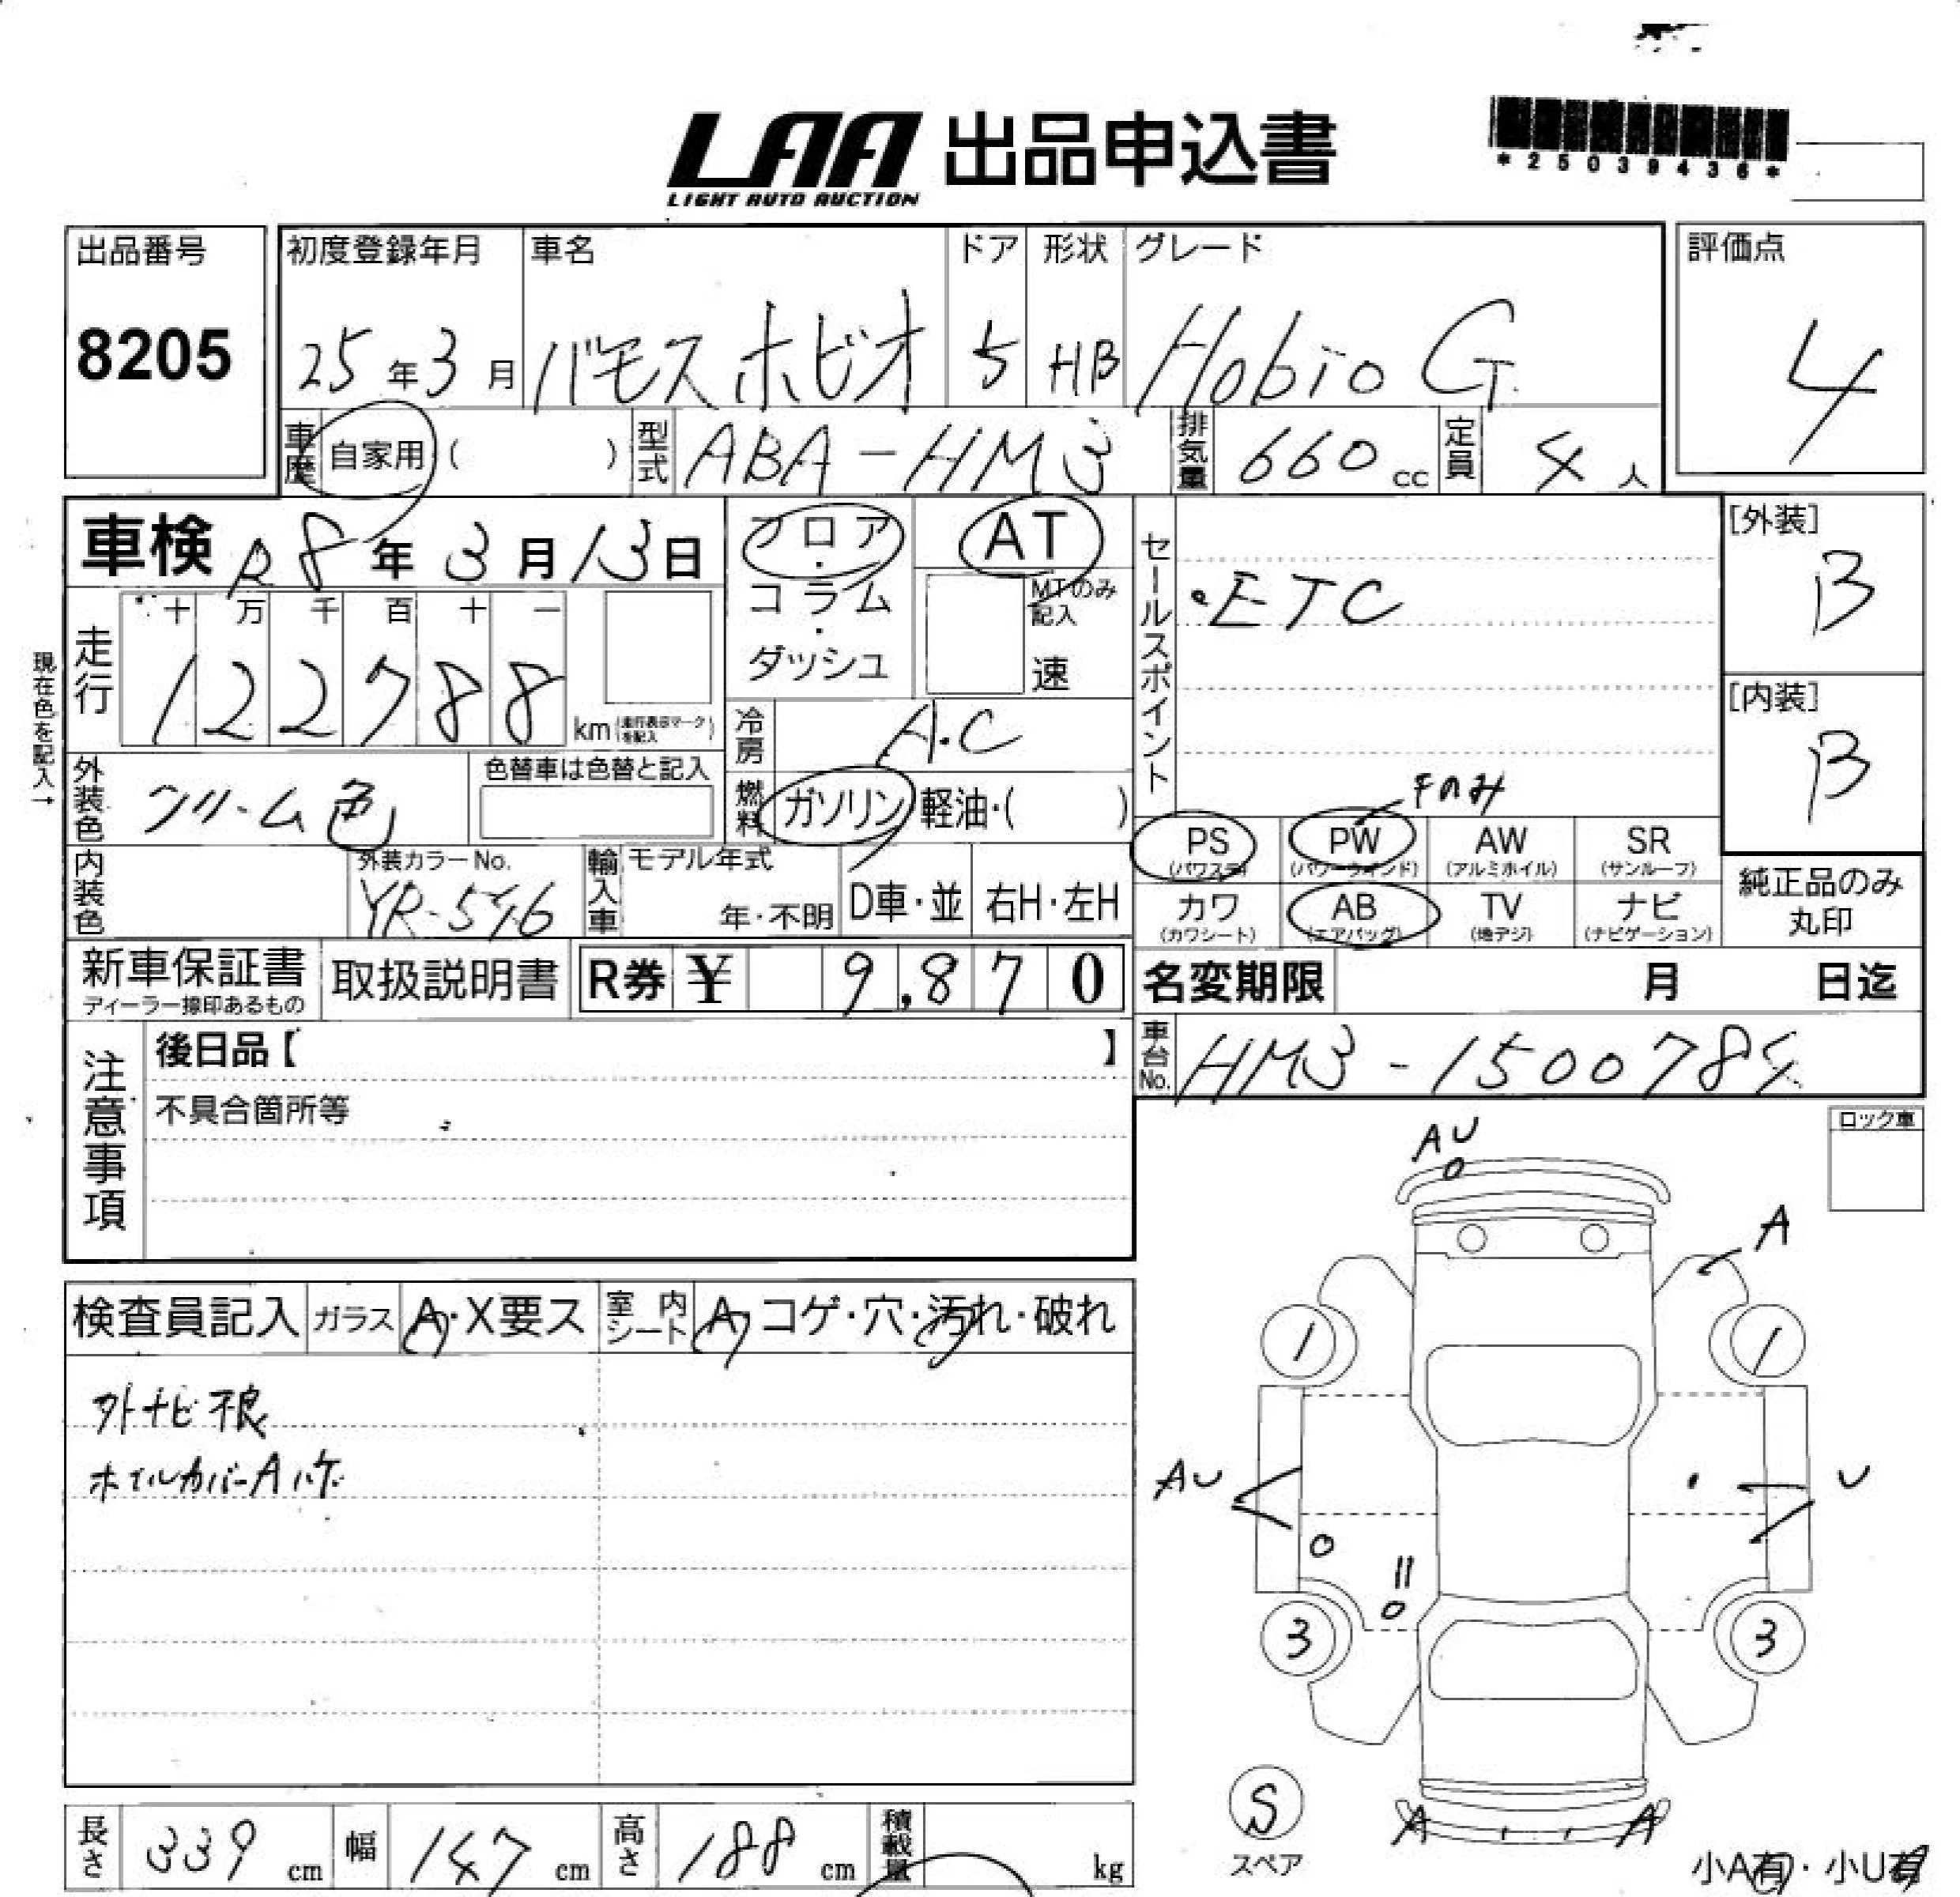 LAA 出品申込書
LIGHT AUTO AUCTION
*25039436*
出品番号
8205
初度登録年月
25年3月
車名
バモスホビオ
ドア
5
形状
HB
グレード
Hobio G
評価点
4
車歴 自家用( )
型式 ABA-HM3
排気量 660 cc
定員 4人
車検 R8年3月13日
フロア・コラム・ダッシュ
AT
MTのみ記入
速
セールスポイント
・ETC
[外装]
B
[内装]
B
現在色を記入→
走行
十万千百十一
122788 km(走行表示マークを記入)
冷房 A.C
外装色 クリーム色
色替車は色替と記入
燃料 ガソリン・軽油・( )
Fのみ
PS(パワステ) PW(パワーウインド) AW(アルミホイル) SR(サンルーフ)
カワ(カワシート) AB(エアバッグ) TV(地デジ) ナビ(ナビゲーション)
純正品のみ丸印
内装色
外装カラーNo.
YR-546
輸入車
モデル年式
年・不明
D車・並
右H・左H
新車保証書
ディーラー捺印あるもの
取扱説明書
R券 ¥ 9,870
名変期限 月 日迄
車台No. HM3-1500784
注意事項
後日品【 】
不具合箇所等
ロック車
検査員記入 ガラス A・X要ス 室内シート A・コゲ・穴・汚れ・破れ
外ナビ不良
ホイルカバーAハゲ
AU
A
1
1
AU
U
3
3
S
スペア
A
A
小A有・小U有
長さ 339 cm
幅 147 cm
高さ 188 cm
積載量 kg